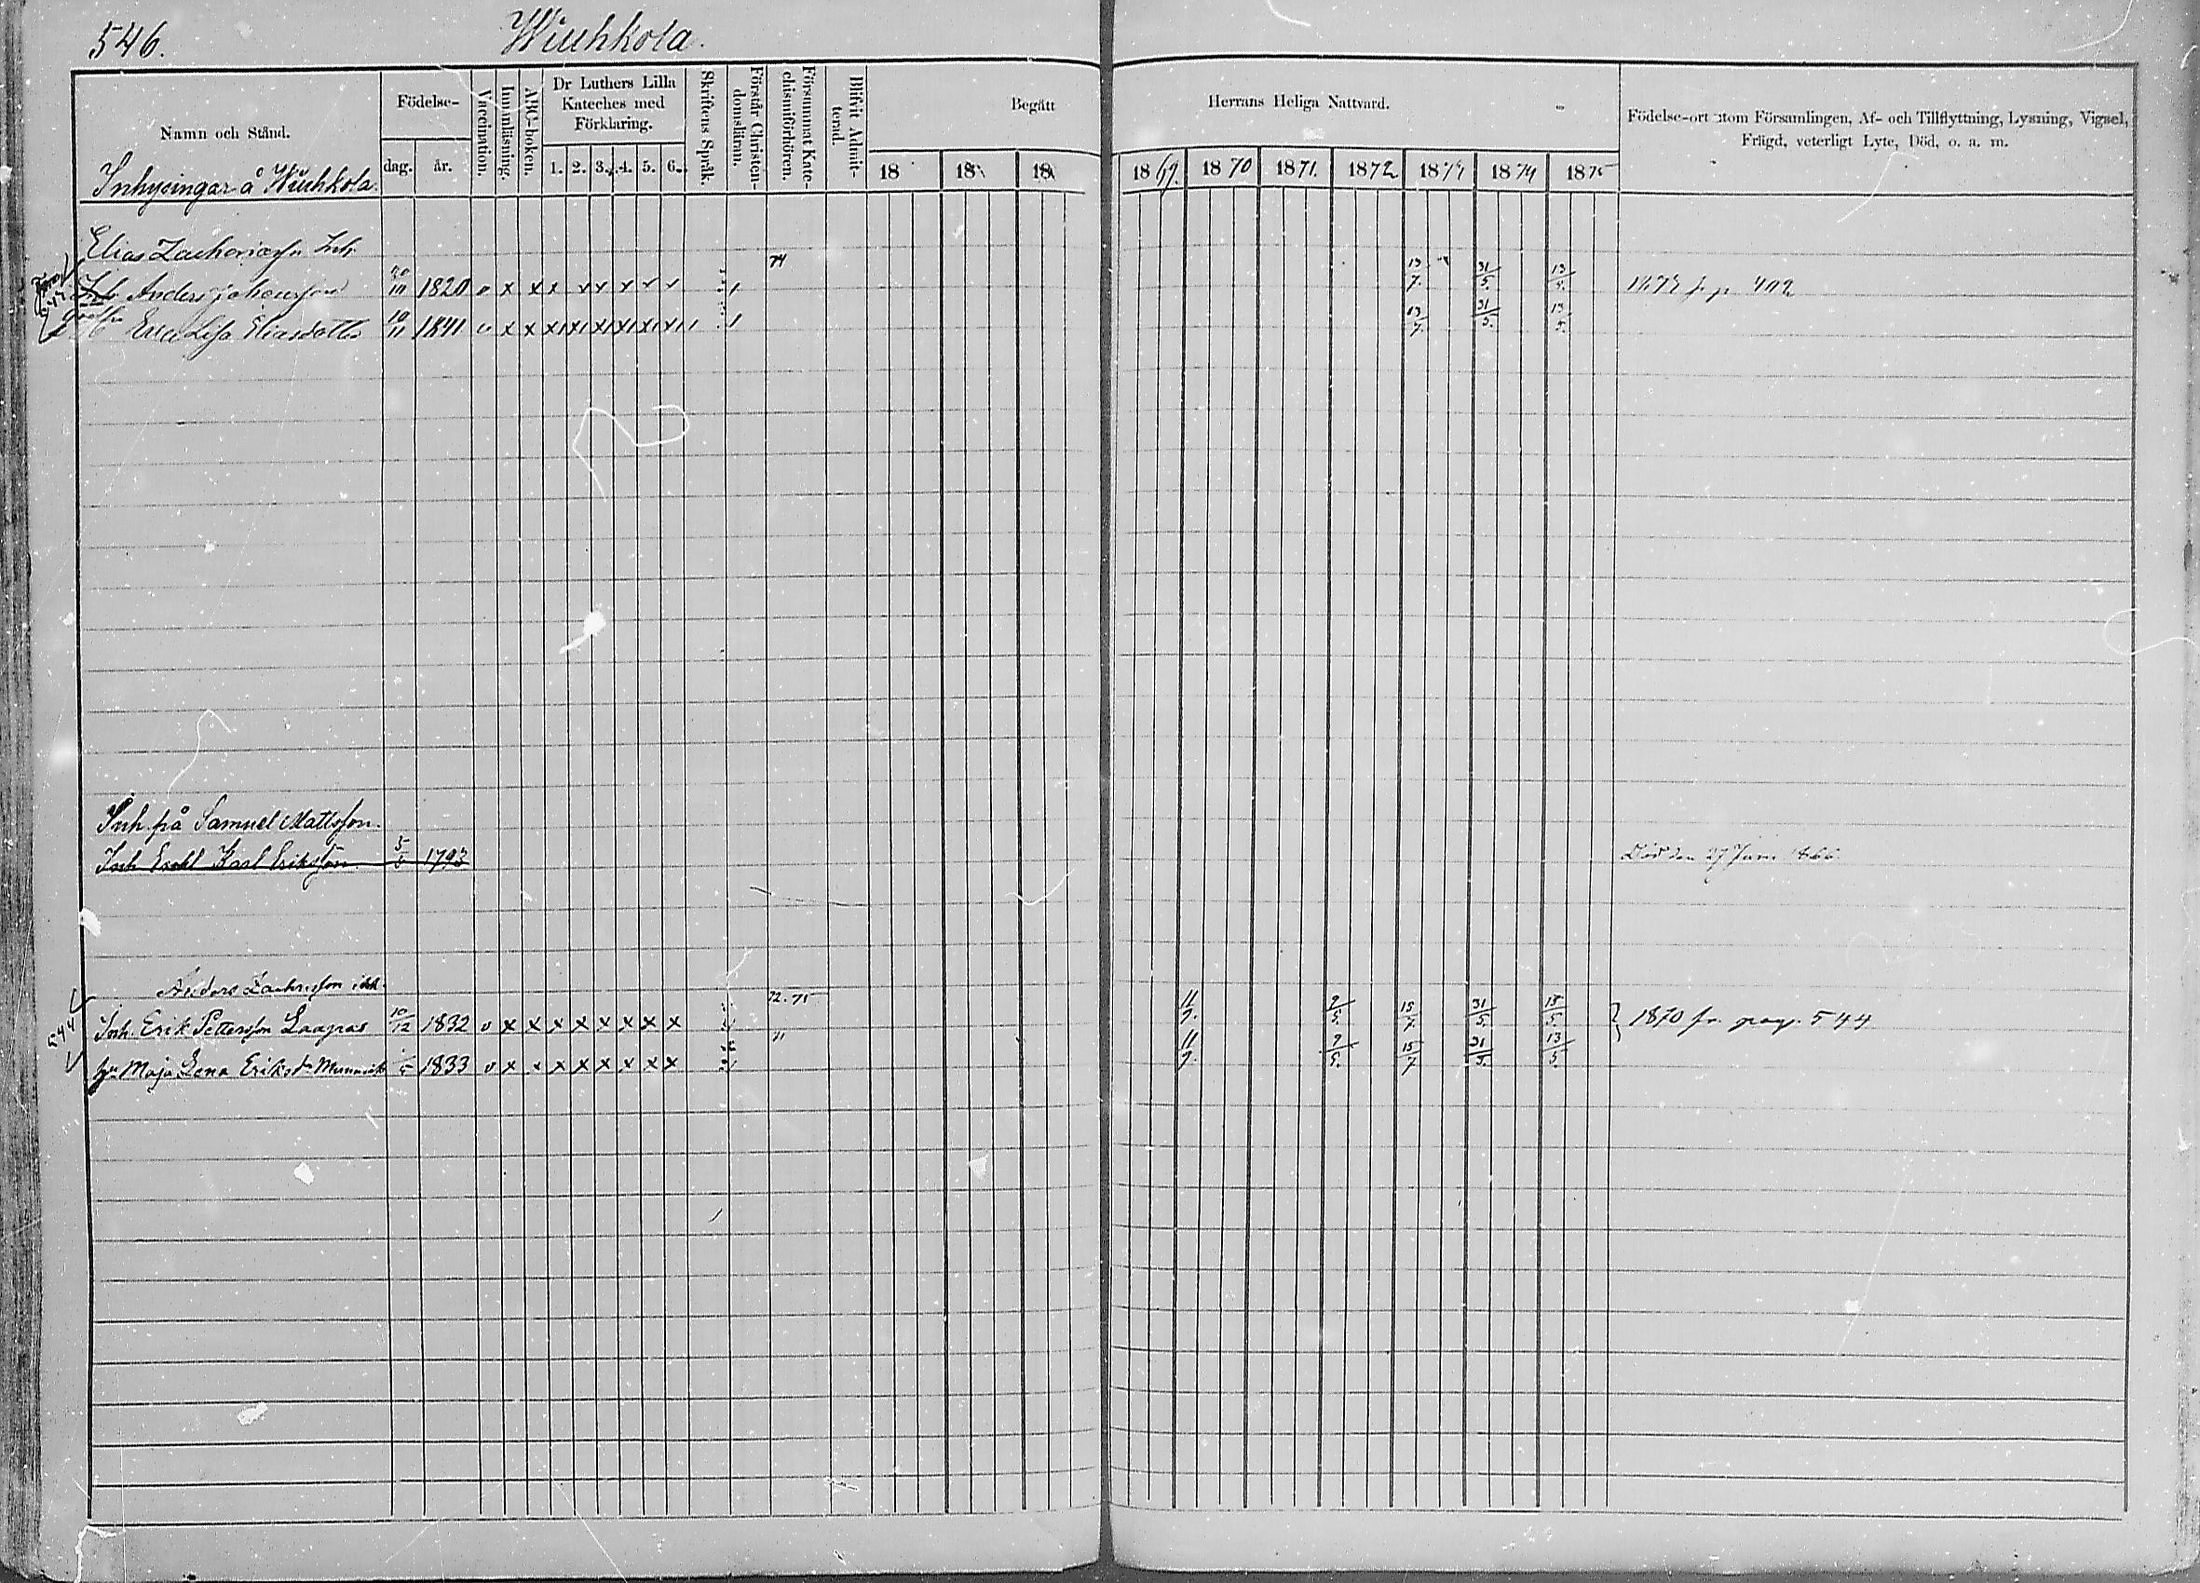 546.
Wiuhkola.
Namn och Stånd.
Födelse-
dag. år.
Vaccination.
Innanläsning.
ABC-boken.
Dr Luthers Lilla Kateches med Förklaring.
1. 2. 3. 4. 5. 6.
Skriftens Språk.
Förstår Christendomsläran.
Försummat Katechismiförhören.
Blifvit Admitterad.
Begått Herrans Heliga Nattvard.
18 18 18 1869. 1870 1871. 1872 1873 1874 1875
Födelse-ort utom Församlingen, Af- och Tillflyttning, Lysning, Vigsel,
Frägd, veterligt Lyte, Död, o. a. m.
Inhysingar å Wiuhkola.
Elias Zachariass. Inh.
Anders Johansson 20/10 1820 v x x x x x x x x 74 13/7. 31/5. 13/5. 1873 fr p 402
Eva Lisa Eliasdotter 10/11 1841 v x x x x x x x x 13/7. 31/5. 13/5.
Inh på Samuel Mattsson.
Inh Enkl Karl Eriksson 5/5 1793 Död den 27 Juni 1866.
Anders Zachrisson inh.
544
Inh. Erik Pettersson Laapas 10/12 1832 v x x x x x x x x 72. 75 11/7. 9/5. 15/7. 31/5. 13/5. 1870 fr. pag. 544
hu Maja Lena Eriksdr 1833 v x x x x x x x x 71 11/7. 9/5. 15/7. 31/5. 13/5.